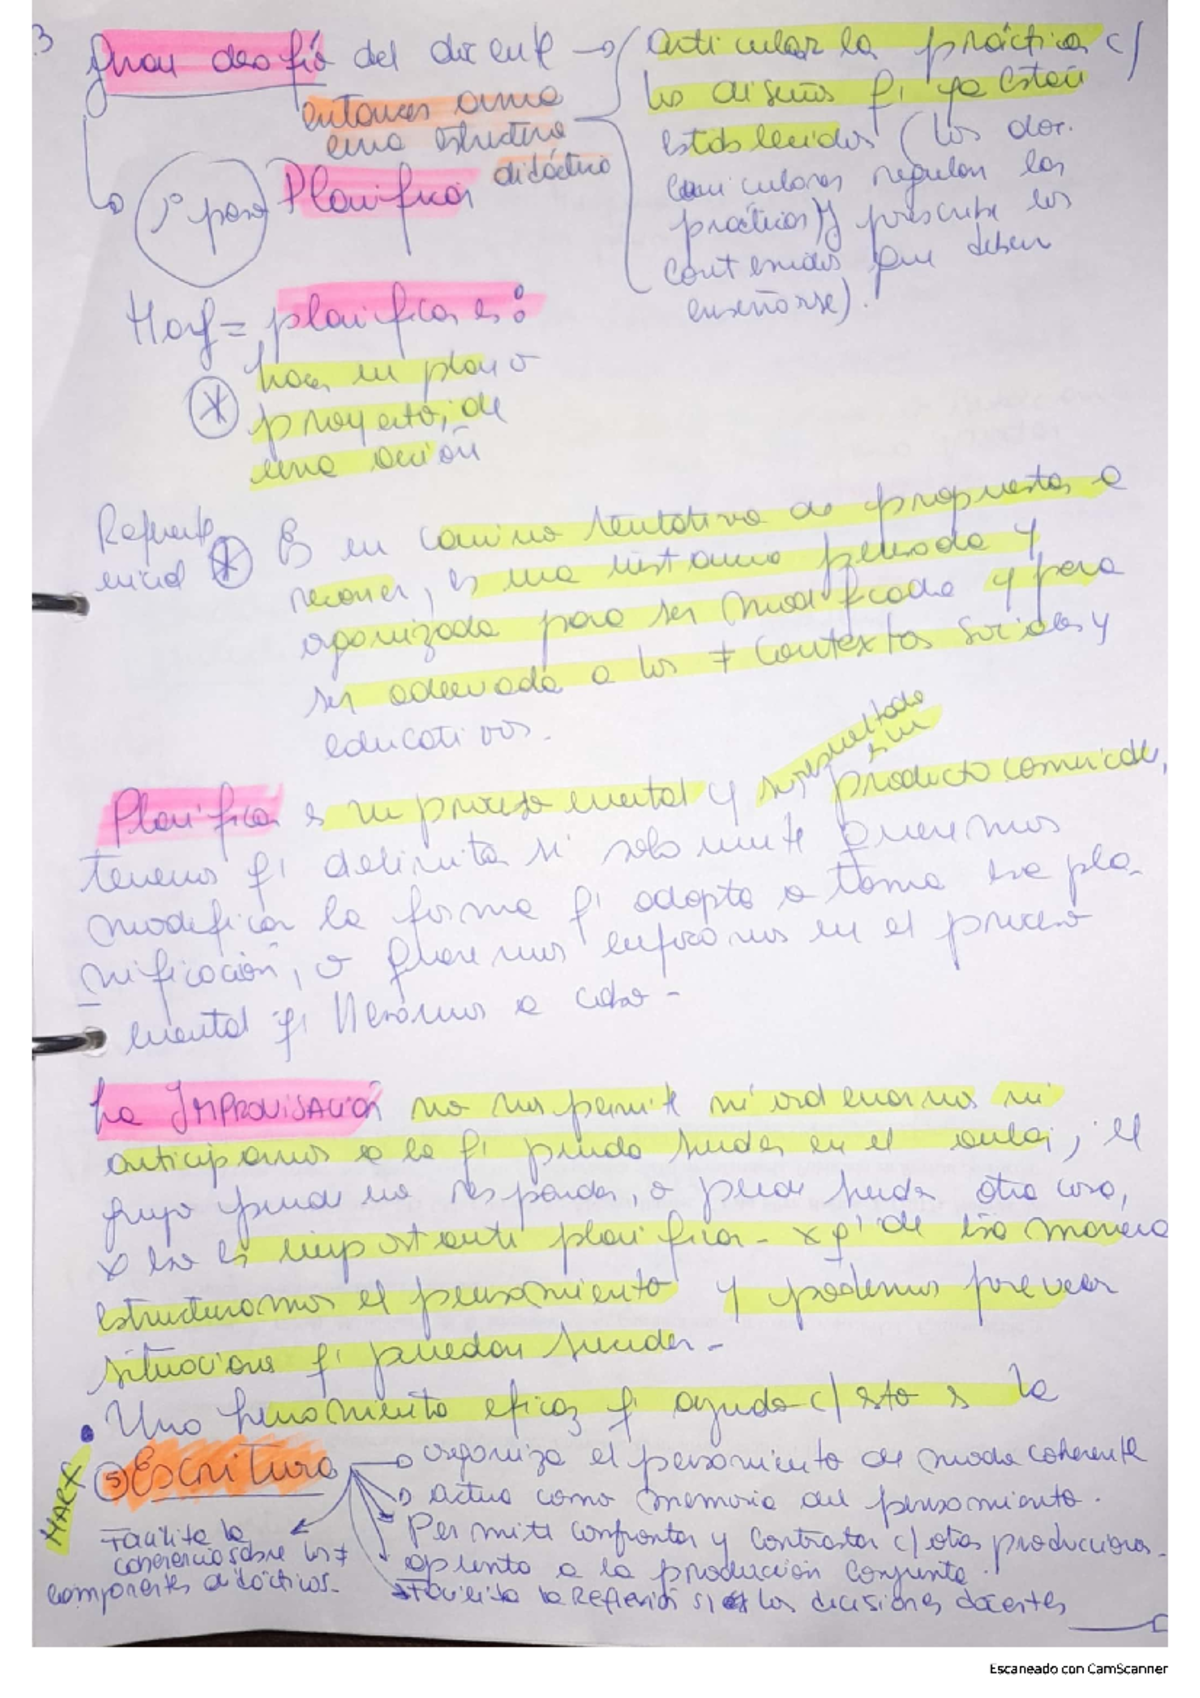 3
Gran desafío del docente → articular la práctica c/
los diseños q' ya están
establecidos (los doc.
curriculares regulan las
prácticas) y prescribe los
contenidos que deben
enseñarse).
entonces arma
una estructura
didáctica
1° paso Planificar
Harf = planificar es:
* hacer un plan o
proyecto, de
una acción
Referente
inicial * Es un camino tentativo de propuestas a
recorrer, es una instancia pensada y
organizada para ser modificada y para
ser adecuada a los ≠ contextos sociales y
educativos.
Planificar es un proceso mental y su resultado
es un
producto comunicable,
tenemos q' delimitar si solamente queremos
modificar la forma q' adopta o toma esa pla-
nificación, o queremos enfocarnos en el proceso
mental q' llevamos a cabo -
La IMPROVISACIÓN no nos permite ni ordenarnos ni
anticiparnos a lo q' pueda suceder en el aula, el
grupo puede no responder, o puede suceder otra cosa,
x eso es importante planificar - xq' de esa manera
estructuramos el pensamiento y podemos preveer
situaciones q' puedan suceder -
• Una herramienta eficaz q' ayuda c/ esto es la
HARF
5 Escritura → organiza el pensamiento de modo coherente
→ actúa como memoria del pensamiento.
→ Permite confrontar y contrastar c/ otras producciones.
→ aplenta a la producción conjunta.
→ Facilita la reflexión s/ las decisiones docentes
Facilita la
coherencia sobre los ≠
componentes didácticos.
Escaneado con CamScanner